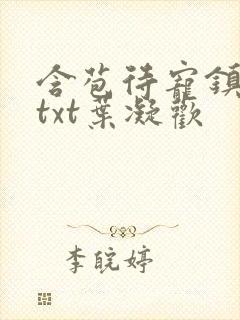 含苞待寵鎮
txt葉凝歡
李皖婷